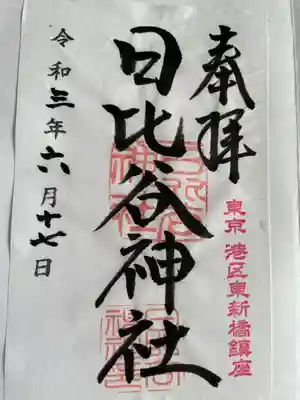 奉拝
東京 港区東新橋鎮座
日比谷神社
令和三年六月十七日